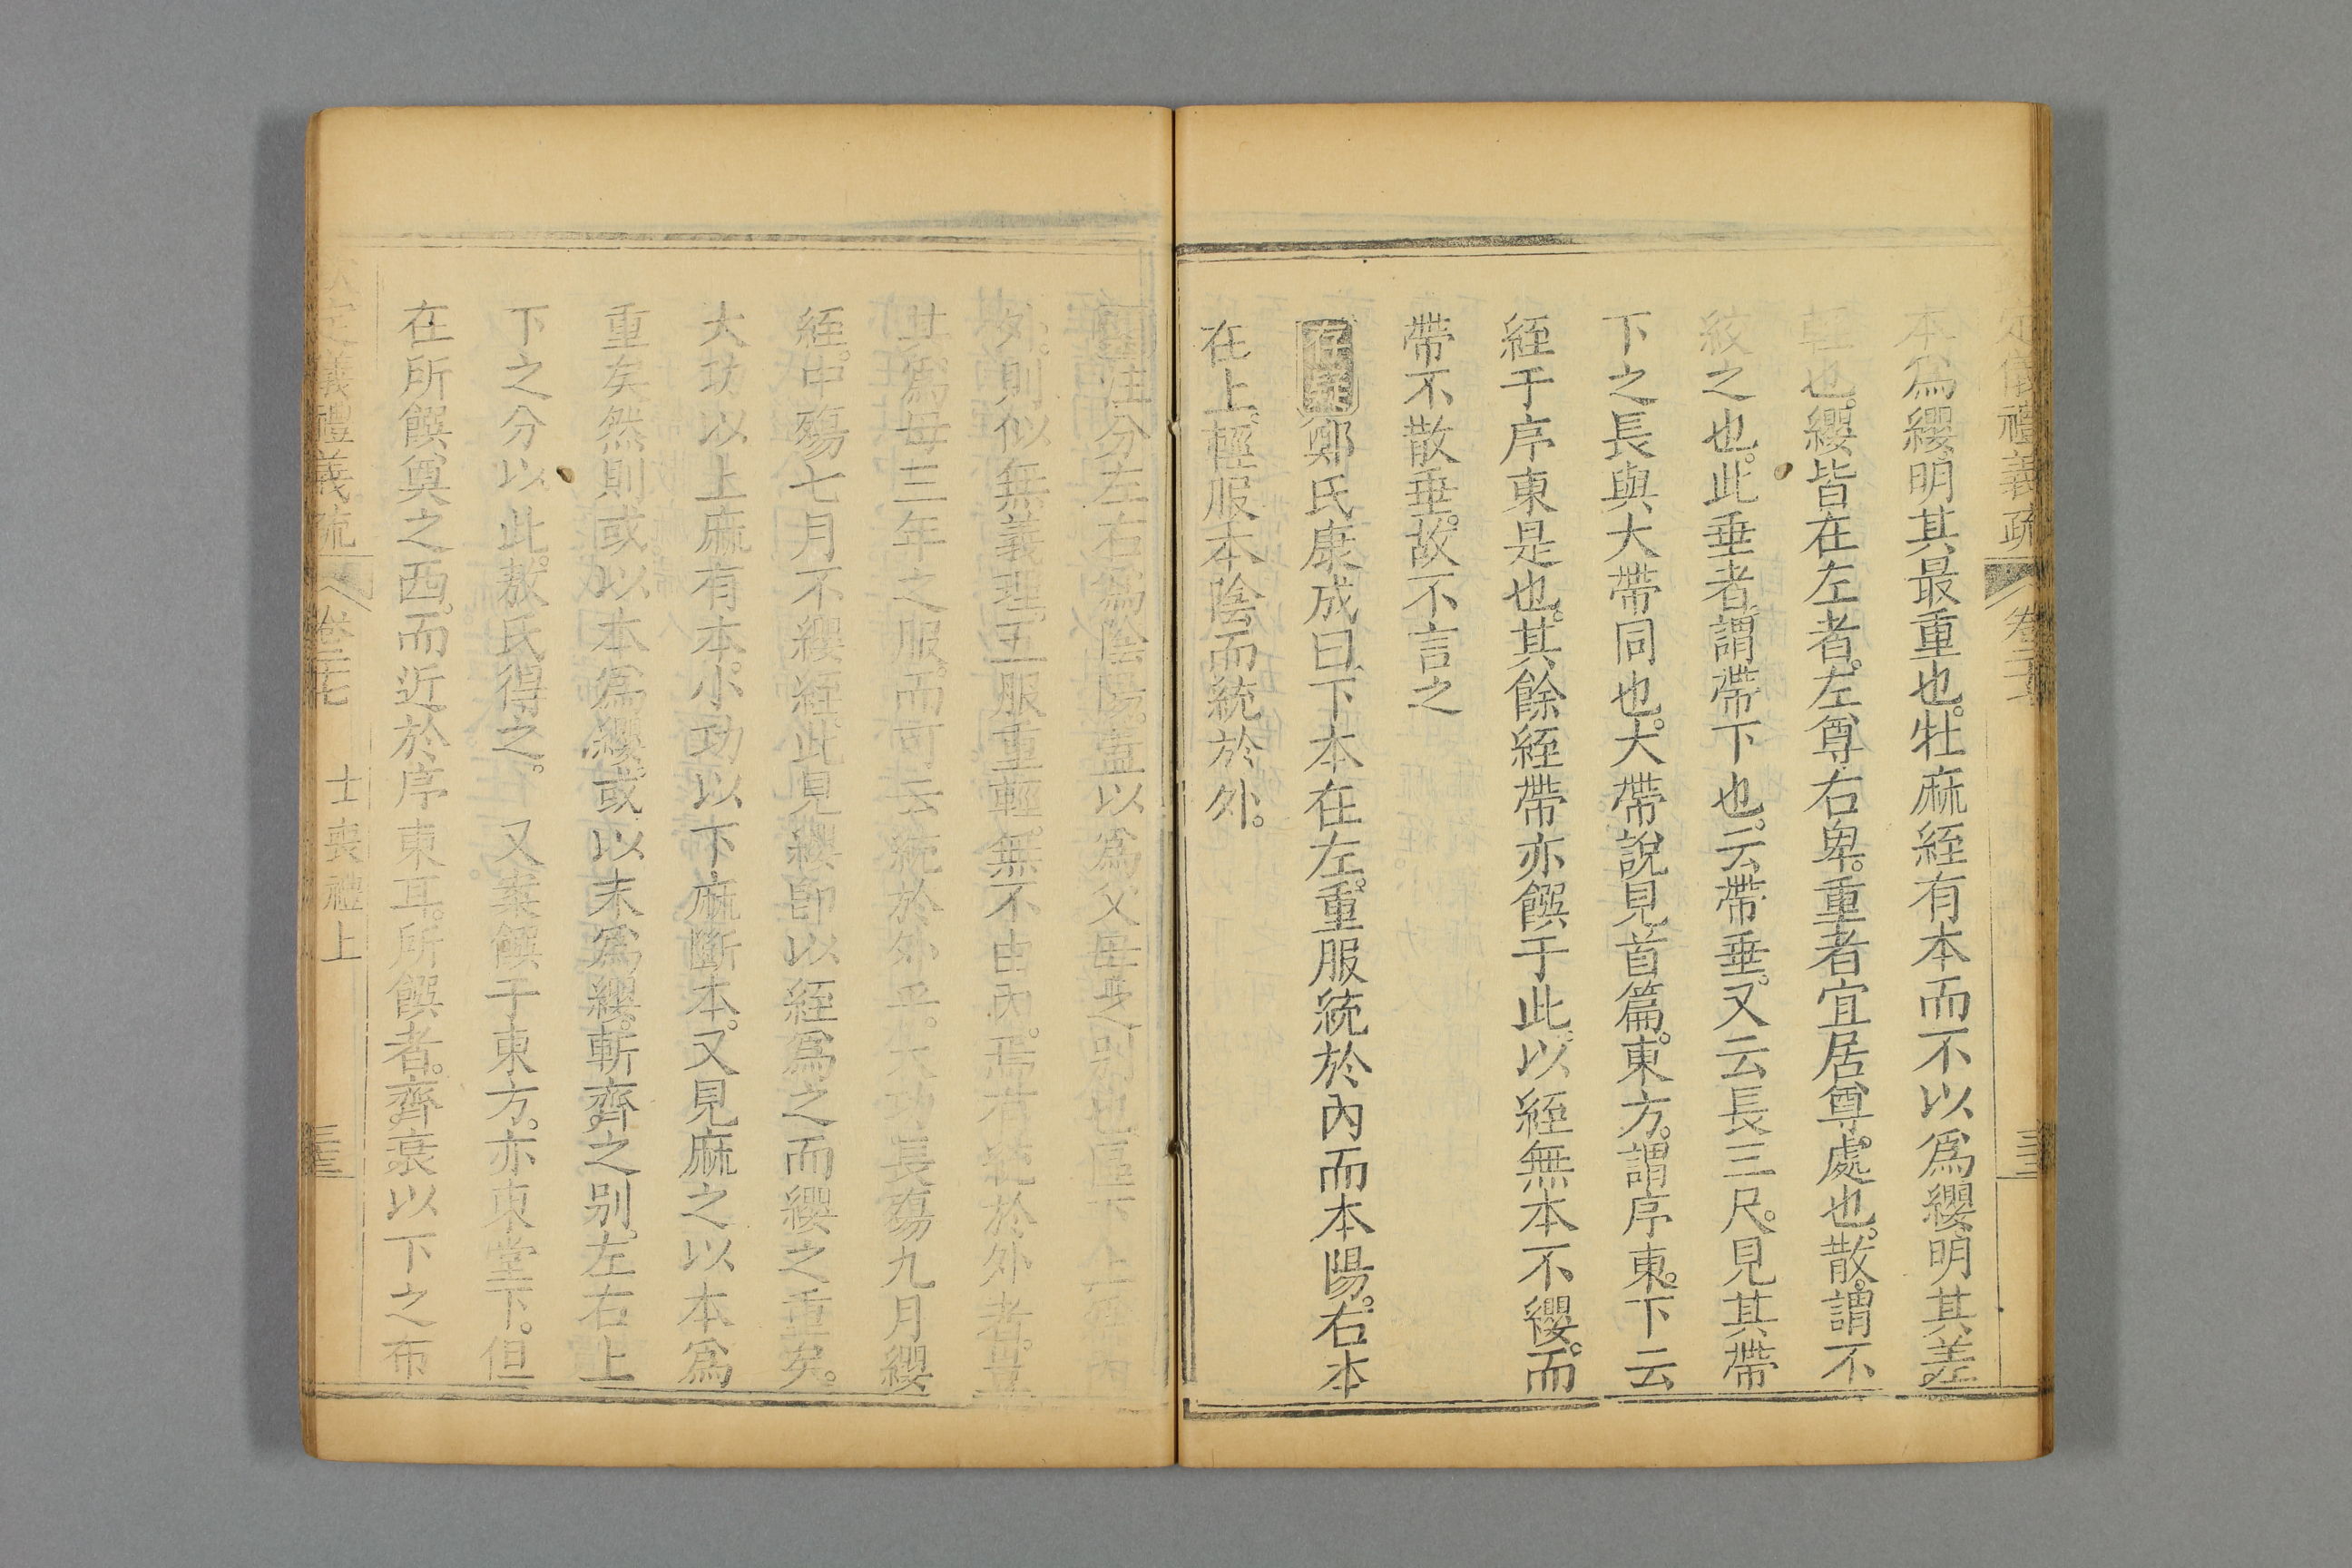 定儀禮義疏 卷二十七
本爲纓明其最重也牡麻絰有本而不以爲纓明其差
輕也纓皆在左者左尊右卑重者宜居尊處也散謂不
絞之也此垂者謂帶下也云帶垂又云長三尺見其帶
下之長與大帶同也大帶說見首篇東方謂序東下云
絰于序東是也其餘絰帶亦饌于此以絰無本不纓而
帶不散垂故不言之
存異鄭氏康成曰下本在左重服統於內而本陽右本
在上輕服本陰而統於外
注分左右爲陰陽蓋以爲父母之别也下上
外則似無義理五服重輕無不由內焉有統於外者
其爲母三年之服而可云統於外乎大功長殤九月纓
絰中殤七月不纓絰此見纓卽以絰爲之而纓之重矣
大功以上麻有本小功以下麻斷本又見麻之以本爲
重矣然則或以本爲纓或以末爲纓斬齊之别左右上
下之分以此敖氏得之 又案饌于東方亦東堂下但
在所饌奠之西而近於序東耳所饌者齊衰以下之布
定儀禮義疏 卷二十七 士喪禮上